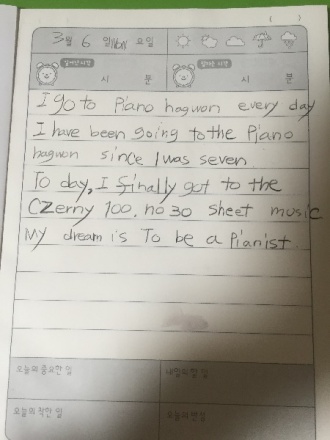 ( )
3월 6일 Mon 요일
일어난 시각 시 분 잠자는 시각 시 분
I go to Piano hagwon every day
I have been going to the Piano
hagwon since I was seven.
To day, I finally got to the
Czerny 100. no 30 sheet music
My dream is To be a Pianist.
오늘의 중요한 일 내일의 할 일
오늘의 착한 일 오늘의 반성